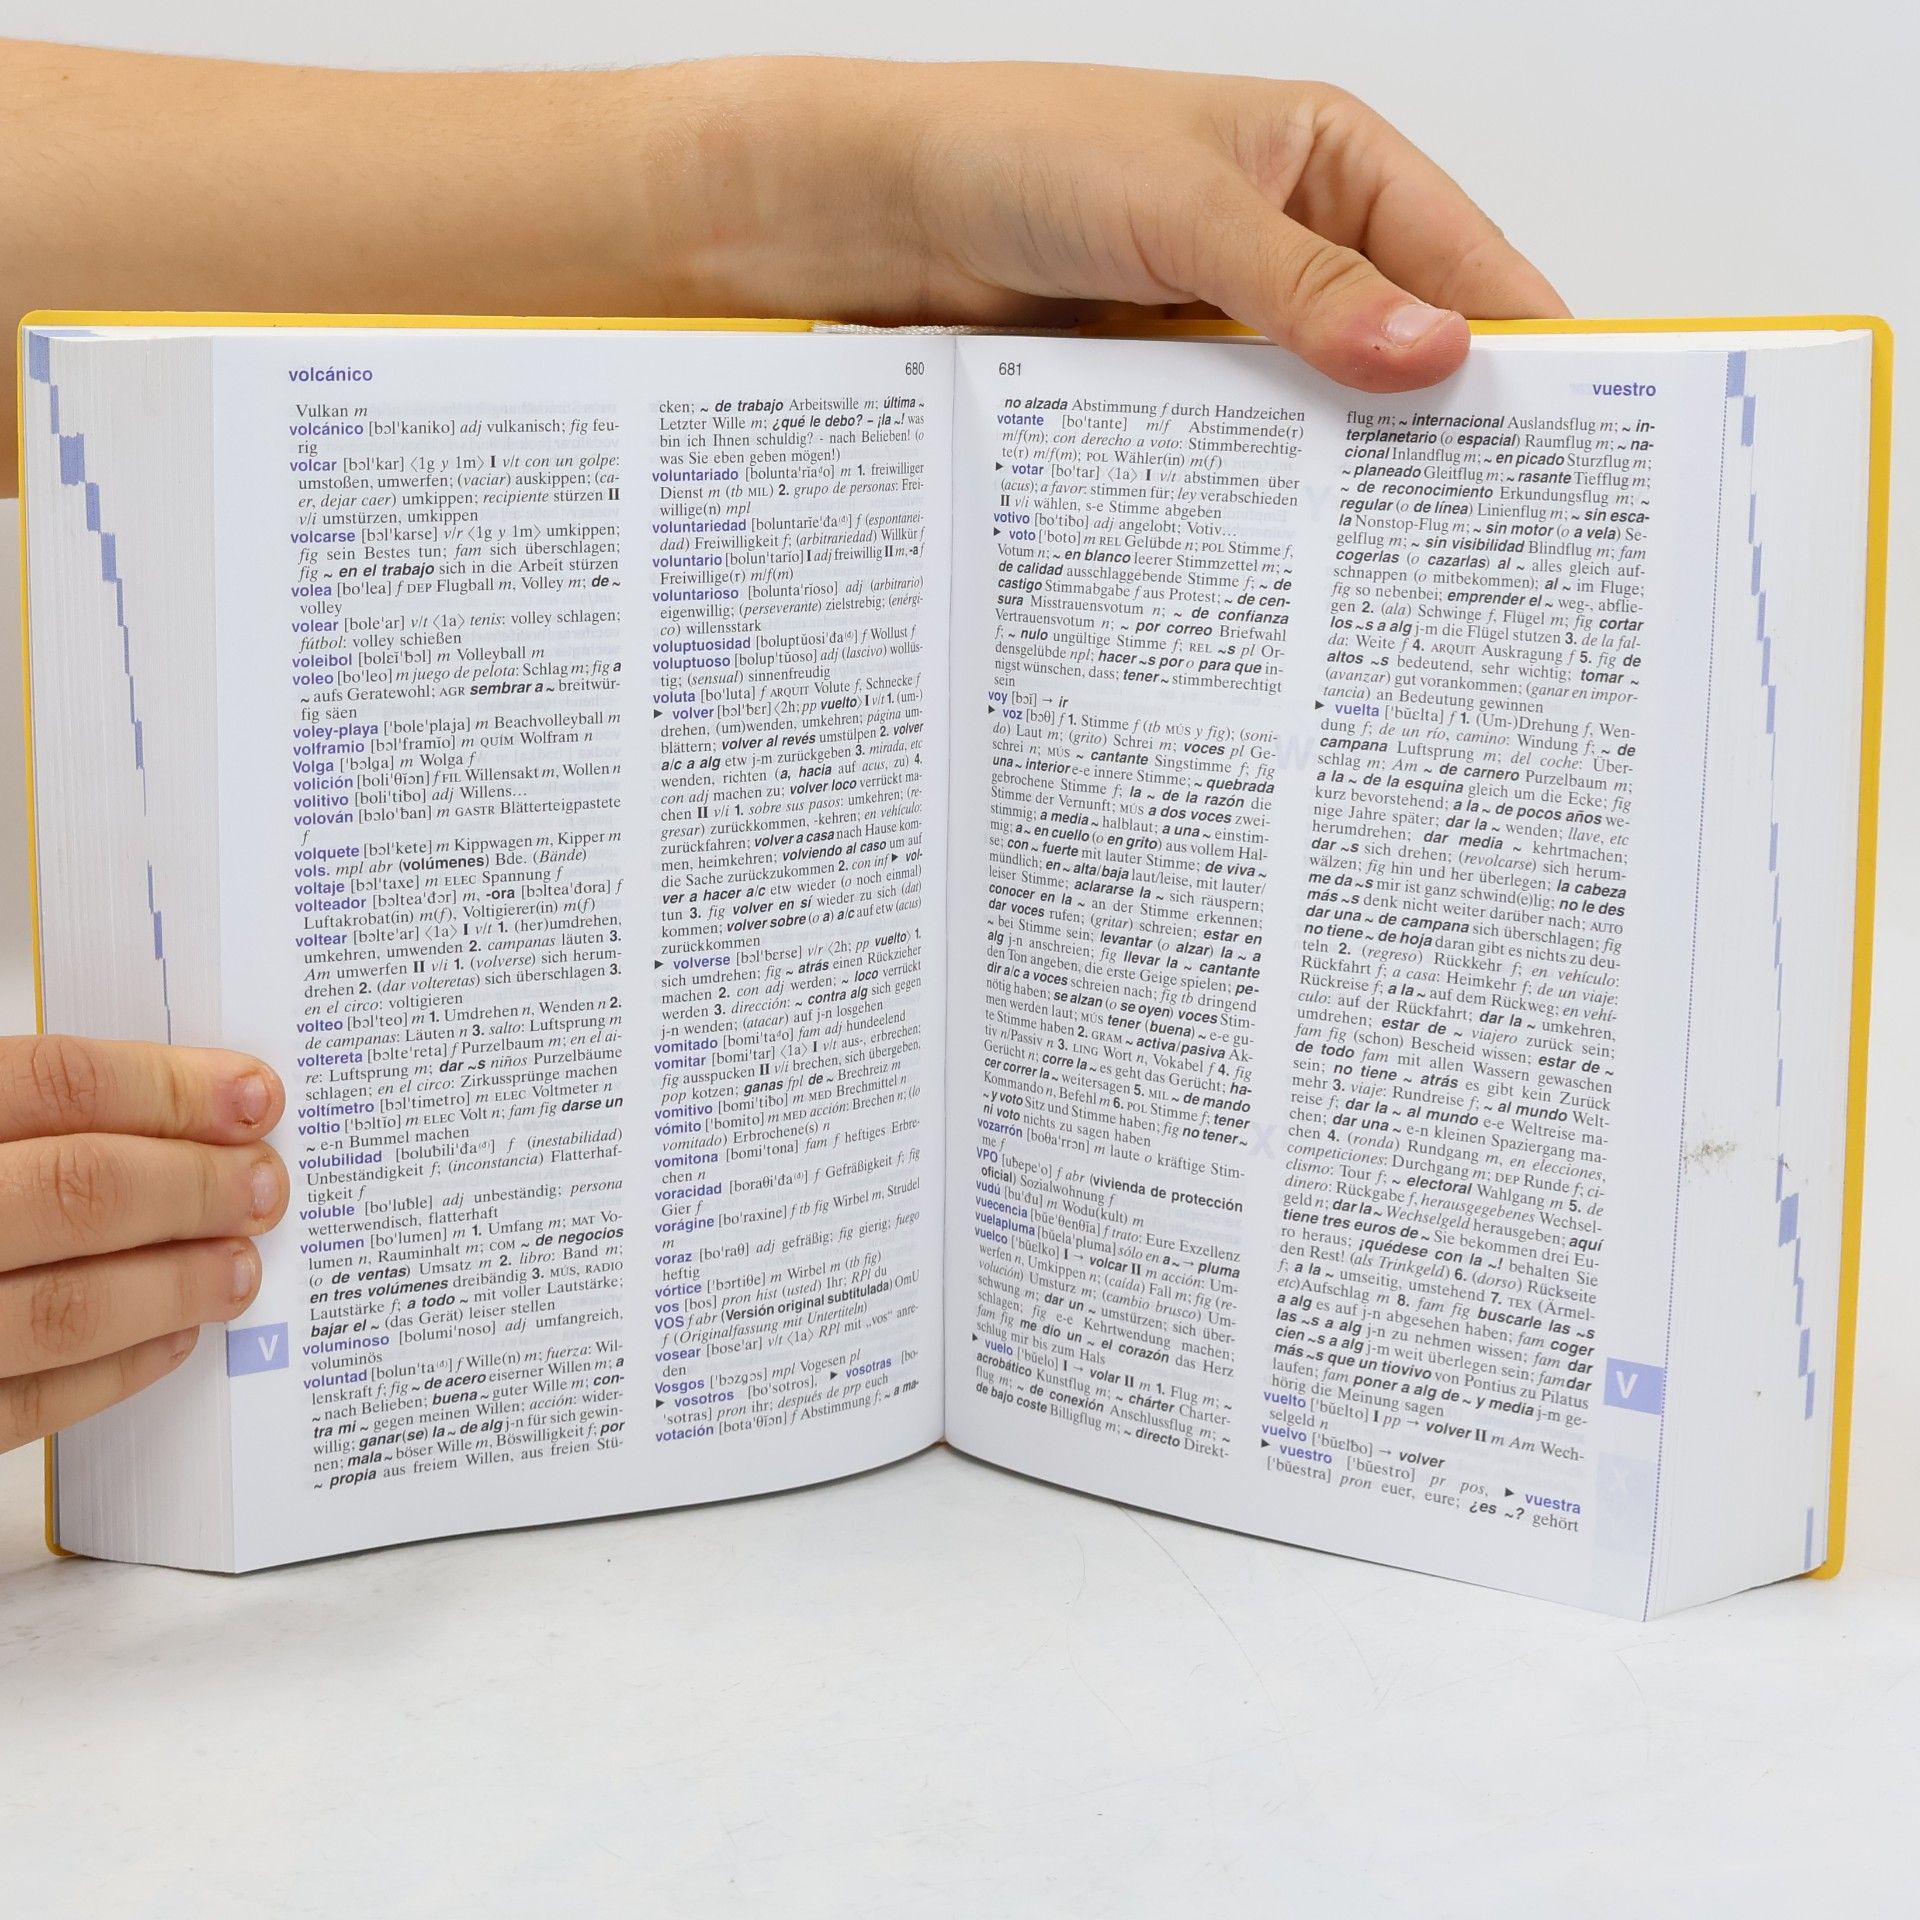 volcánico
680
Vulkan m
volcánico [bɔlˈkaniko] adj vulkanisch; fig feu-
rig
volcar [bɔlˈkar] ⟨1g y 1m⟩ I v/t con un golpe:
umstoßen, umwerfen; (vaciar) auskippen; (ca-
er, dejar caer) umkippen; recipiente stürzen II
v/i umstürzen, umkippen
volcarse [bɔlˈkarse] v/r ⟨1g y 1m⟩ umkippen;
fig sein Bestes tun; fam sich überschlagen;
fig ~ en el trabajo sich in die Arbeit stürzen
volea [boˈlea] f DEP Flugball m, Volley m; de ~
volley
volear [boleˈar] v/t ⟨1a⟩ tenis: volley schlagen;
fútbol: volley schießen
voleibol [bolɛĭˈbɔl] m Volleyball m
voleo [boˈleo] m juego de pelota: Schlag m; fig a
~ aufs Geratewohl; AGR sembrar a ~ breitwür-
fig säen
voley-playa [ˈboleˈplaja] m Beachvolleyball m
volframio [bɔlˈframĭo] m QUÍM Wolfram n
Volga [ˈbɔlga] m Wolga f
volición [boliˈθĭɔn] f FIL Willensakt m, Wollen n
volitivo [boliˈtibo] adj Willens…
volován [bɔloˈban] m GASTR Blätterteigpastete
f
volquete [bɔlˈkete] m Kippwagen m, Kipper m
vols. mpl abr (volúmenes) Bde. (Bände)
voltaje [bɔlˈtaxe] m ELEC Spannung f
volteador [bɔlteaˈdɔr] m, -ora [bɔlteaˈdora] f
Luftakrobat(in) m(f), Voltigierer(in) m(f)
voltear [bɔlteˈar] ⟨1a⟩ I v/t 1. (her)umdrehen,
umkehren, umwenden 2. campanas läuten 3.
Am umwerfen II v/i 1. (volverse) sich herum-
drehen 2. (dar volteretas) sich überschlagen 3.
en el circo: voltigieren
volteo [bɔlˈteo] m 1. Umdrehen n, Wenden n 2.
de campanas: Läuten n 3. salto: Luftsprung m
voltereta [bɔlteˈreta] f Purzelbaum m; en el ai-
re: Luftsprung m; dar ~s niños Purzelbäume
schlagen; en el circo: Zirkussprünge machen
voltímetro [bɔlˈtimetro] m ELEC Voltmeter n
voltio [ˈbɔltĭo] m ELEC Volt n; fam fig darse un
~ e-n Bummel machen
volubilidad [bolubiliˈda⁽ᵈ⁾] f (inestabilidad)
Unbeständigkeit f; (inconstancia) Flatterhaf-
tigkeit f
voluble [boˈluble] adj unbeständig; persona
wetterwendisch, flatterhaft
volumen [boˈlumen] m 1. Umfang m; MAT Vo-
lumen n, Rauminhalt m; COM ~ de negocios
(o de ventas) Umsatz m 2. libro: Band m;
en tres volúmenes dreibändig 3. MÚS, RADIO
Lautstärke f; a todo ~ mit voller Lautstärke;
bajar el ~ (das Gerät) leiser stellen
voluminoso [bolumiˈnoso] adj umfangreich,
voluminös
voluntad [bolunˈta⁽ᵈ⁾] f Wille(n) m; fuerza: Wil-
lenskraft f; fig ~ de acero eiserner Willen m; a
~ nach Belieben; buena ~ guter Wille m; con-
tra mi ~ gegen meinen Willen; acción: wider-
willig; ganar(se) la ~ de alg j-n für sich gewin-
nen; mala ~ böser Wille m, Böswilligkeit f; por
~ propia aus freiem Willen, aus freien Stü-
V
cken; ~ de trabajo Arbeitswille m; última ~
Letzter Wille m; ¿qué le debo? - ¡la ~! was
bin ich Ihnen schuldig? - nach Belieben! (o
was Sie eben geben mögen!)
voluntariado [boluntaˈrĭaᵈo] m 1. freiwilliger
Dienst m (tb MIL) 2. grupo de personas: Frei-
willige(n) mpl
voluntariedad [boluntarĭeˈda⁽ᵈ⁾] f (espontanei-
dad) Freiwilligkeit f; (arbitrariedad) Willkür f
voluntario [bolunˈtarĭo] I adj freiwillig II m, -a f
Freiwillige(r) m/f(m)
voluntarioso [boluntaˈrĭoso] adj (arbitrario)
eigenwillig; (perseverante) zielstrebig; (enérgi-
co) willensstark
voluptuosidad [boluptŭosiˈda⁽ᵈ⁾] f Wollust f
voluptuoso [bolupˈtŭoso] adj (lascivo) wollüs-
tig; (sensual) sinnenfreudig
voluta [boˈluta] f ARQUIT Volute f, Schnecke f
► volver [bɔlˈbɛr] ⟨2h; pp vuelto⟩ I v/t 1. (um-)
drehen, (um)wenden, umkehren; página um-
blättern; volver al revés umstülpen 2. volver
a/c a alg etw j-m zurückgeben 3. mirada, etc
wenden, richten (a, hacia auf acus, zu) 4.
con adj machen zu; volver loco verrückt ma-
chen II v/i 1. sobre sus pasos: umkehren; (re-
gresar) zurückkommen, -kehren; en vehículo:
zurückfahren; volver a casa nach Hause kom-
men, heimkehren; volviendo al caso um auf
die Sache zurückzukommen 2. con inf ► vol-
ver a hacer a/c etw wieder (o noch einmal)
tun 3. fig volver en sí wieder zu sich (dat)
kommen; volver sobre (o a) a/c auf etw (acus)
zurückkommen
► volverse [bɔlˈberse] v/r ⟨2h; pp vuelto⟩ 1.
sich umdrehen; fig ~ atrás einen Rückzieher
machen 2. con adj werden; ~ loco verrückt
werden 3. dirección: ~ contra alg sich gegen
j-n wenden; (atacar) auf j-n losgehen
vomitado [bomiˈtaᵈo] fam adj hundeelend
vomitar [bomiˈtar] ⟨1a⟩ I v/t aus-, erbrechen;
fig ausspucken II v/i brechen, sich übergeben,
pop kotzen; ganas fpl de ~ Brechreiz m
vomitivo [bomiˈtibo] m MED Brechmittel n
vómito [ˈbomito] m MED acción: Brechen n; (lo
vomitado) Erbrochene(s) n
vomitona [bomiˈtona] fam f heftiges Erbre-
chen n
voracidad [boraθiˈda⁽ᵈ⁾] f Gefräßigkeit f; fig
Gier f
vorágine [boˈraxine] f tb fig Wirbel m, Strudel
m
voraz [boˈraθ] adj gefräßig; fig gierig; fuego
heftig
vórtice [ˈbɔrtiθe] m Wirbel m (tb fig)
vos [bos] pron hist (usted) Ihr; RPl du
VOS f abr (Versión original subtitulada) OmU
f (Originalfassung mit Untertiteln)
vosear [boseˈar] v/t ⟨1a⟩ RPl mit „vos“ anre-
den
Vosgos [ˈbɔzgɔs] mpl Vogesen pl
► vosotros [boˈsotros], ► vosotras [bo-
ˈsotras] pron ihr; después de prp euch
votación [botaˈθĭɔn] f Abstimmung f; ~ a ma-
681
vuestro
no alzada Abstimmung f durch Handzeichen
votante [boˈtante] m/f Abstimmende(r)
m/f(m); con derecho a voto: Stimmberechtig-
te(r) m/f(m); POL Wähler(in) m(f)
► votar [boˈtar] ⟨1a⟩ I v/t abstimmen über
(acus); a favor: stimmen für; ley verabschieden
II v/i wählen, s-e Stimme abgeben
votivo [boˈtibo] adj angelobt; Votiv…
► voto [ˈboto] m REL Gelübde n; POL Stimme f,
Votum n; ~ en blanco leerer Stimmzettel m; ~
de calidad ausschlaggebende Stimme f; ~ de
castigo Stimmabgabe f aus Protest; ~ de cen-
sura Misstrauensvotum n; ~ de confianza
Vertrauensvotum n; ~ por correo Briefwahl
f; ~ nulo ungültige Stimme f; REL ~s pl Or-
densgelübde npl; hacer ~s por o para que in-
nigst wünschen, dass; tener ~ stimmberechtigt
sein
voy [bɔĭ] → ir
► voz [bɔθ] f 1. Stimme f (tb MÚS y fig); (soni-
do) Laut m; (grito) Schrei m; voces pl Ge-
schrei n; MÚS ~ cantante Singstimme f; fig
una ~ interior e-e innere Stimme; ~ quebrada
gebrochene Stimme f; la ~ de la razón die
Stimme der Vernunft; MÚS a dos voces zwei-
stimmig; a media ~ halblaut; a una ~ einstim-
mig; a ~ en cuello (o en grito) aus vollem Hal-
se; con ~ fuerte mit lauter Stimme; de viva ~
mündlich; en ~ alta/baja laut/leise, mit lauter/
leiser Stimme; aclararse la ~ sich räuspern;
conocer en la ~ an der Stimme erkennen;
dar voces rufen; (gritar) schreien; estar en
~ bei Stimme sein; levantar (o alzar) la ~ a
alg j-n anschreien; fig llevar la ~ cantante
den Ton angeben, die erste Geige spielen; pe-
dir a/c a voces schreien nach; fig tb dringend
nötig haben; se alzan (o se oyen) voces Stim-
men werden laut; MÚS tener (buena) ~ e-e gu-
te Stimme haben 2. GRAM ~ activa/pasiva Ak-
tiv n/Passiv n 3. LING Wort n, Vokabel f 4. fig
Gerücht n; corre la ~ es geht das Gerücht; ha-
cer correr la ~ weitersagen 5. MIL ~ de mando
Kommando n, Befehl m 6. POL Stimme f; tener
~ y voto Sitz und Stimme haben; fig no tener ~
ni voto nichts zu sagen haben
vozarrón [boθaˈrrɔn] m laute o kräftige Stim-
me f
VPO [ubepeˈo] f abr (vivienda de protección
oficial) Sozialwohnung f
vudú [buˈdu] m Wodu(kult) m
vuecencia [bŭeˈθenθĭa] f trato: Eure Exzellenz
vuelapluma [bŭelaˈpluma] sólo en a ~ → pluma
vuelco [ˈbŭelko] I → volcar II m acción: Um-
werfen n, Umkippen n; (caída) Fall m; fig (re-
volución) Umsturz m; (cambio brusco) Um-
schwung m; dar un ~ umstürzen; sich über-
schlagen; fig e-e Kehrtwendung machen;
fam fig me dio un ~ el corazón das Herz
schlug mir bis zum Hals
► vuelo [ˈbŭelo] I → volar II m 1. Flug m; ~
acrobático Kunstflug m; ~ chárter Charter-
flug m; ~ de conexión Anschlussflug m; ~
de bajo coste Billigflug m; ~ directo Direkt-
flug m; ~ internacional Auslandsflug m; ~ in-
terplanetario (o espacial) Raumflug m; ~ na-
cional Inlandflug m; ~ en picado Sturzflug m;
~ planeado Gleitflug m; ~ rasante Tiefflug m;
~ de reconocimiento Erkundungsflug m; ~
regular (o de línea) Linienflug m; ~ sin esca-
la Nonstop-Flug m; ~ sin motor (o a vela) Se-
gelflug m; ~ sin visibilidad Blindflug m; fam
cogerlas (o cazarlas) al ~ alles gleich auf-
schnappen (o mitbekommen); al ~ im Fluge;
fig so nebenbei; emprender el ~ weg-, abflie-
gen 2. (ala) Schwinge f, Flügel m; fig cortar
los ~s a alg j-m die Flügel stutzen 3. de la fal-
da: Weite f 4. ARQUIT Auskragung f 5. fig de
altos ~s bedeutend, sehr wichtig; tomar ~
(avanzar) gut vorankommen; (ganar en impor-
tancia) an Bedeutung gewinnen
► vuelta [ˈbŭelta] f 1. (Um-)Drehung f, Wen-
dung f; de un río, camino: Windung f; ~ de
campana Luftsprung m; del coche: Über-
schlag m; Am ~ de carnero Purzelbaum m;
a la ~ de la esquina gleich um die Ecke; fig
kurz bevorstehend; a la ~ de pocos años we-
nige Jahre später; dar la ~ wenden; llave, etc
herumdrehen; dar media ~ kehrtmachen;
dar ~s sich drehen; (revolcarse) sich herum-
wälzen; fig hin und her überlegen; la cabeza
me da ~s mir ist ganz schwind(e)lig; no le des
más ~s denk nicht weiter darüber nach; AUTO
dar una ~ de campana sich überschlagen; fig
no tiene ~ de hoja daran gibt es nichts zu deu-
teln 2. (regreso) Rückkehr f; en vehículo:
Rückfahrt f; a casa: Heimkehr f; de un viaje:
Rückreise f; a la ~ auf dem Rückweg; en vehí-
culo: auf der Rückfahrt; dar la ~ umkehren,
umdrehen; estar de ~ viajero zurück sein;
fam fig (schon) Bescheid wissen; estar de ~
de todo fam mit allen Wassern gewaschen
sein; no tiene ~ atrás es gibt kein Zurück
mehr 3. viaje: Rundreise f; ~ al mundo Welt-
reise f; dar la ~ al mundo e-e Weltreise ma-
chen; dar una ~ e-n kleinen Spaziergang ma-
chen 4. (ronda) Rundgang m, en elecciones,
competiciones: Durchgang m; DEP Runde f; ci-
clismo: Tour f; ~ electoral Wahlgang m 5. de
dinero: Rückgabe f, herausgegebenes Wechsel-
geld n; dar la ~ Wechselgeld herausgeben; aquí
tiene tres euros de ~ Sie bekommen drei Eu-
ro heraus; ¡quédese con la ~! behalten Sie
den Rest! (als Trinkgeld) 6. (dorso) Rückseite
f; a la ~ umseitig, umstehend 7. TEX (Ärmel-
etc)Aufschlag m 8. fam fig buscarle las ~s
a alg es auf j-n abgesehen haben; fam coger
las ~s a alg j-n zu nehmen wissen; fam dar
cien ~s a alg j-m weit überlegen sein; fam dar
más ~s que un tiovivo von Pontius zu Pilatus
laufen; fam poner a alg de ~ y media j-m ge-
hörig die Meinung sagen
vuelto [ˈbŭelto] I pp → volver II m Am Wech-
selgeld n
vuelvo [ˈbŭelbo] → volver
► vuestro [ˈbŭestro] pr pos, ► vuestra
[ˈbŭestra] pron euer, eure; ¿es ~? gehört
V